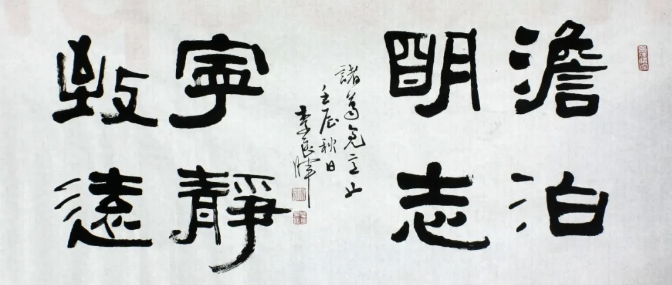 澹泊
明志
諸葛亮
壬辰秋日
李良
寧靜
致遠